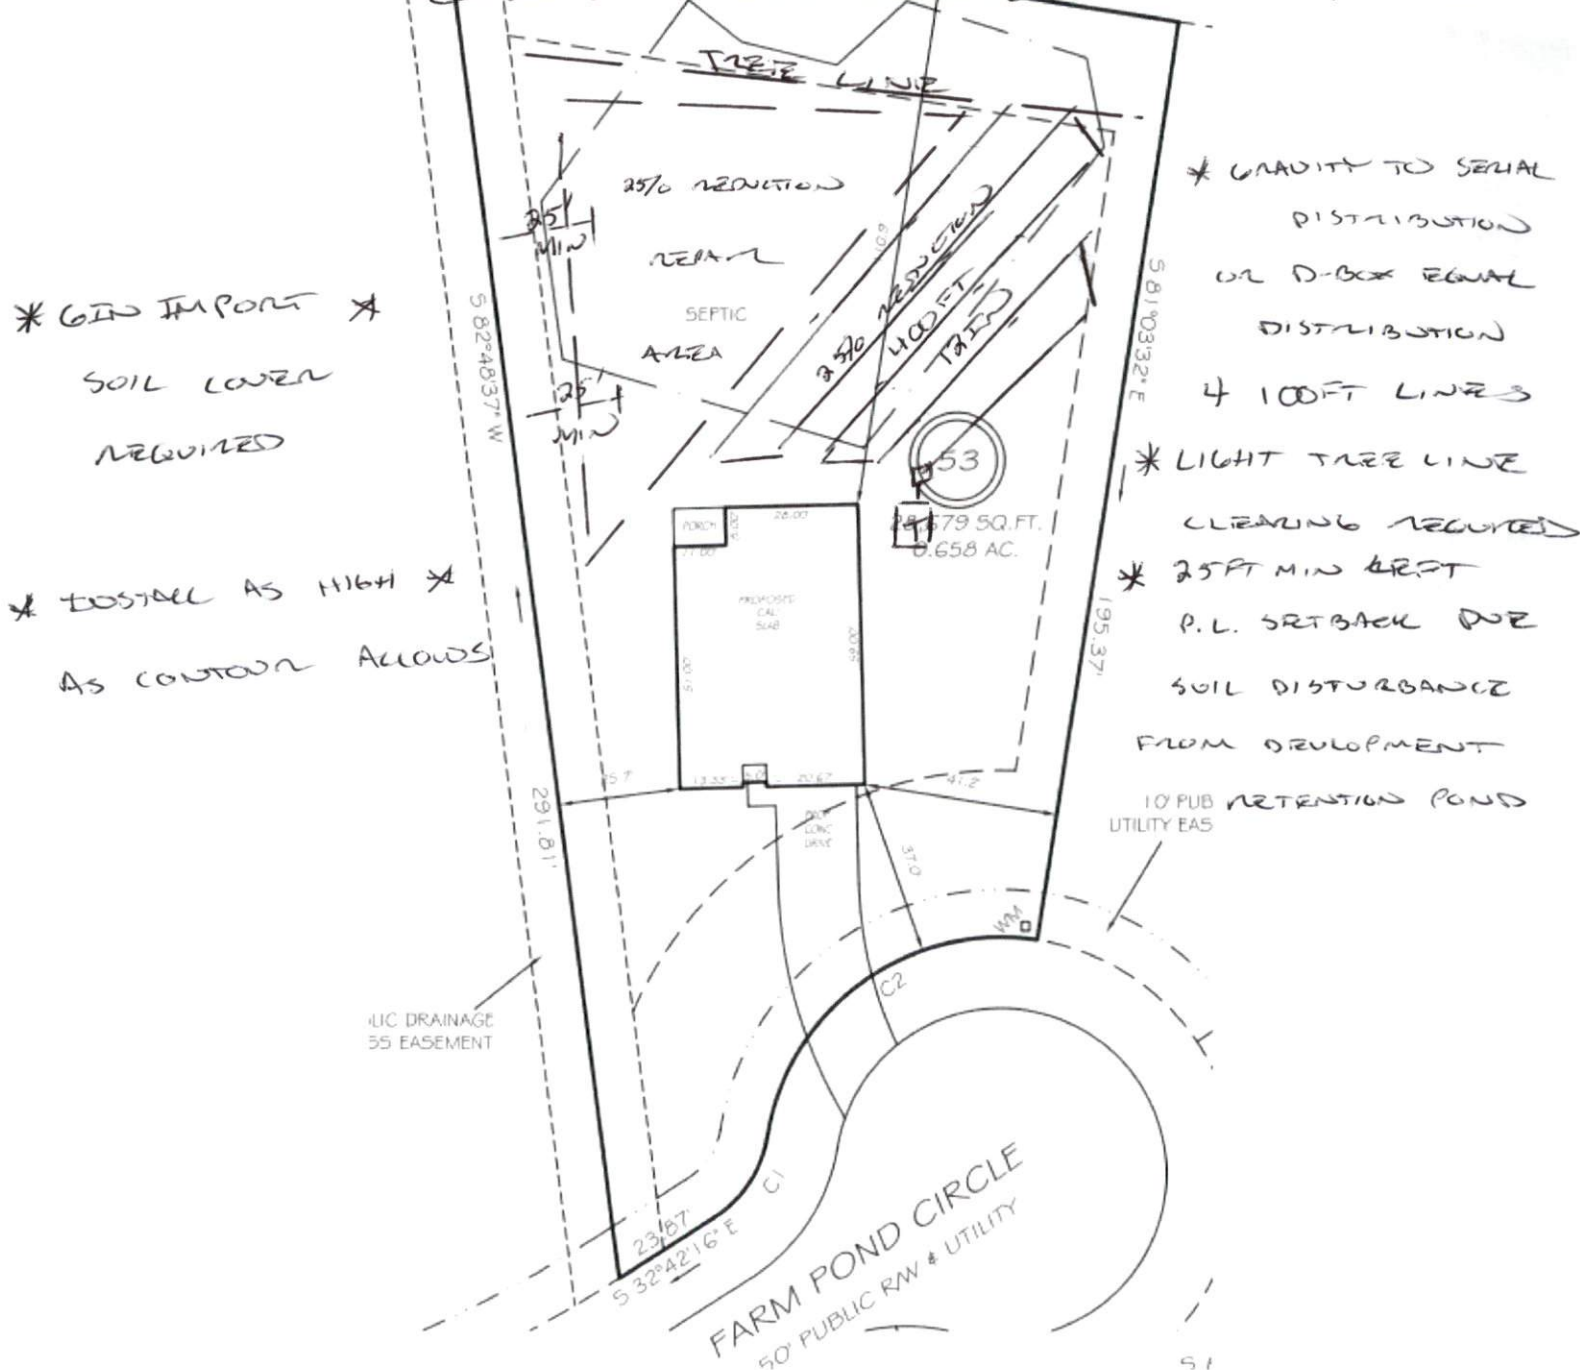 TREE LINE
25% REDUCTION
REPAIR
SEPTIC
AREA
25'
MIN
25'
MIN
25% REDUCTION
400FT
12IN
* 6IN IMPORT *
SOIL COVER
REQUIRED
* INSTALL AS HIGH *
AS CONTOUR ALLOWS
* GRAVITY TO SERIAL
DISTRIBUTION
OR D-BOX EQUAL
DISTRIBUTION
4 100FT LINES
* LIGHT TREE LINE
CLEARING REQUIRED
* 25FT MIN LEFT
P.L. SETBACK DUE
SOIL DISTURBANCE
FROM DEVELOPMENT
RETENTION POND
S 82°48'37" W
291.81'
S 81°03'32" E
195.37'
53
28,679 SQ.FT.
0.658 AC.
PORCH
28.00
11.00
PROPOSED
SLAB
51.00
20.67
41.2
37.0
DRIVE
10' PUB
UTILITY EAS
WM
LIC DRAINAGE
SS EASEMENT
C2
C1
23.87'
S 32°42'16" E
FARM POND CIRCLE
50' PUBLIC R/W & UTILITY